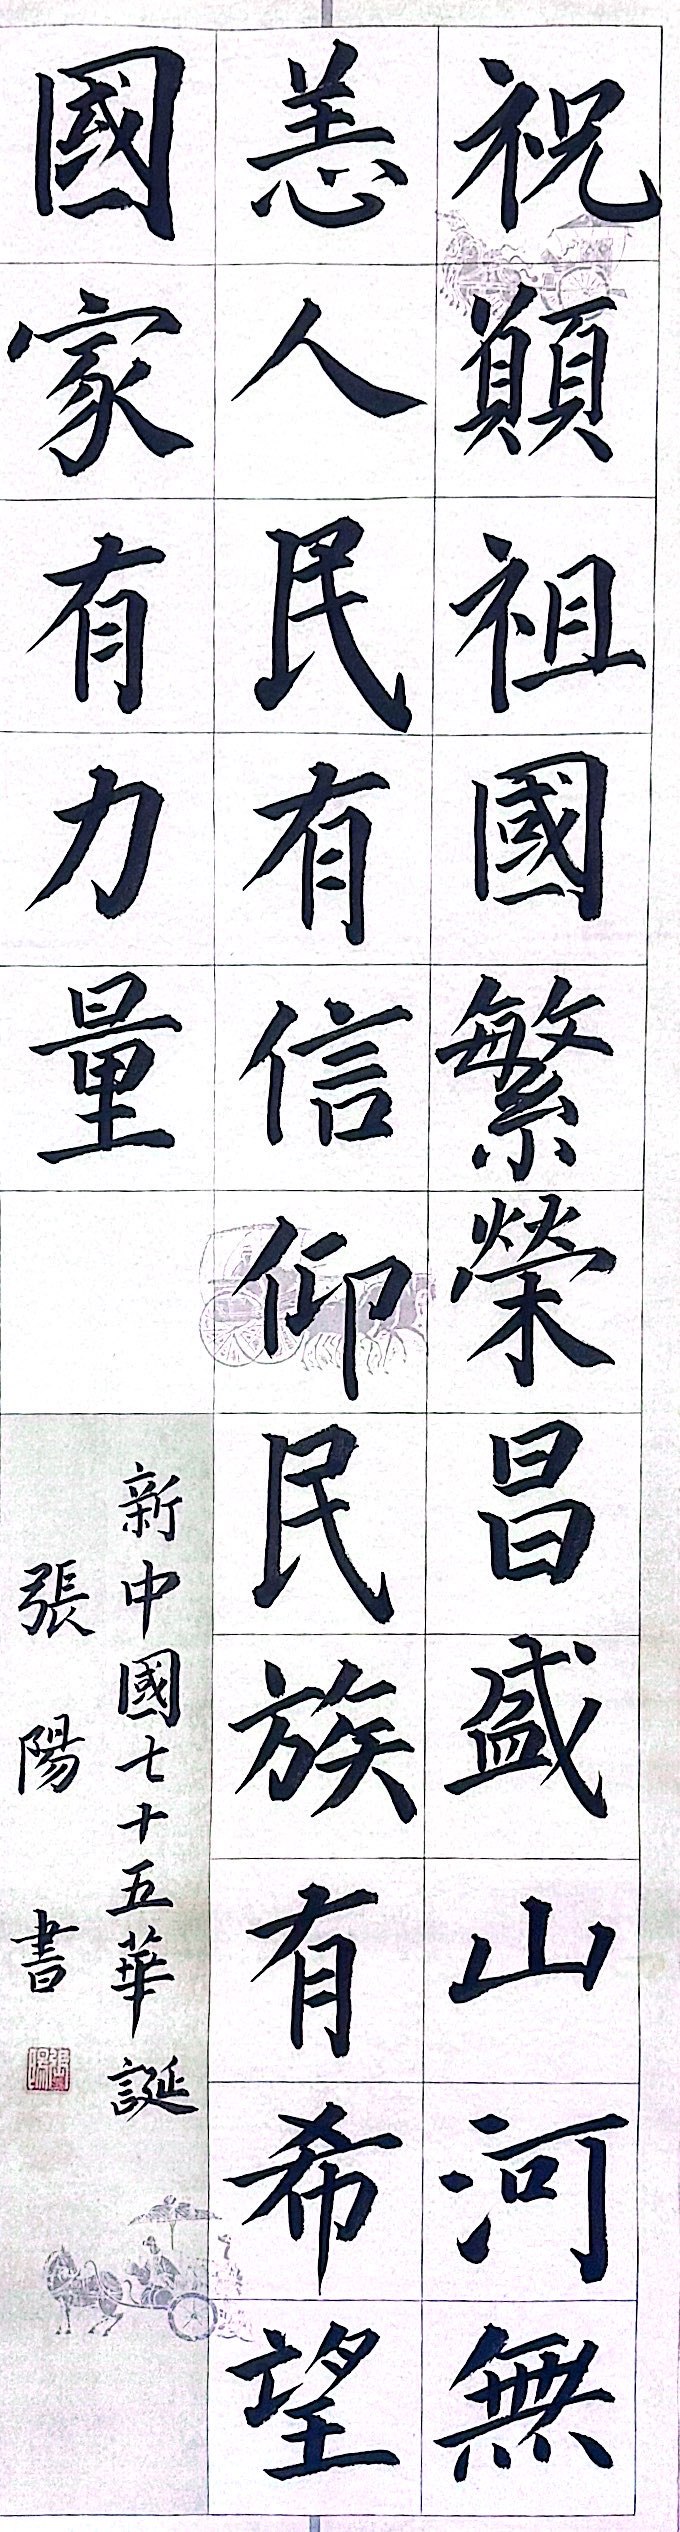 祝願祖國繁榮昌盛山河無
恙人民有信仰民族有希望
國家有力量
新中國七十五華誕
張陽書
張陽